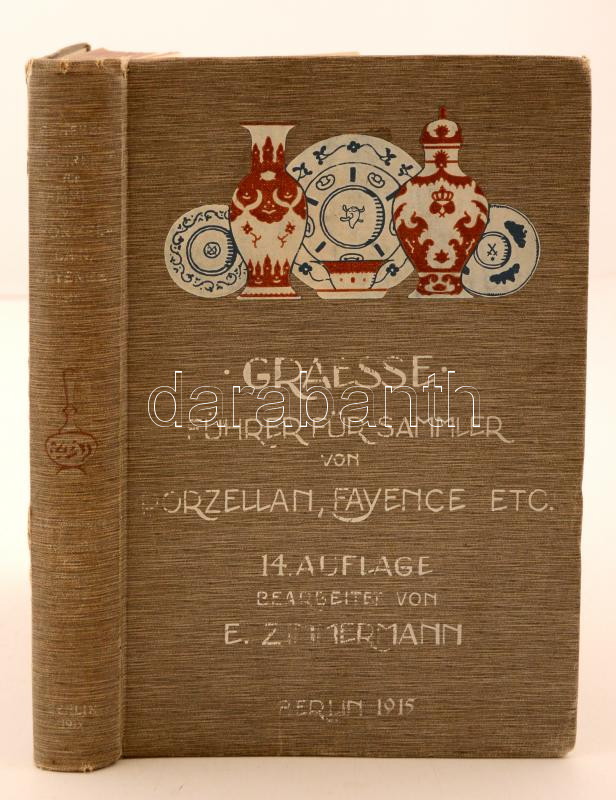 · GRAESSE ·
FÜHRER FÜR SAMMLER
VON
PORZELLAN, FAYENCE ETC.
14. AUFLAGE
BEARBEITET VON
E. ZIMMERMANN
BERLIN 1915
BERLIN
1915
darabanth